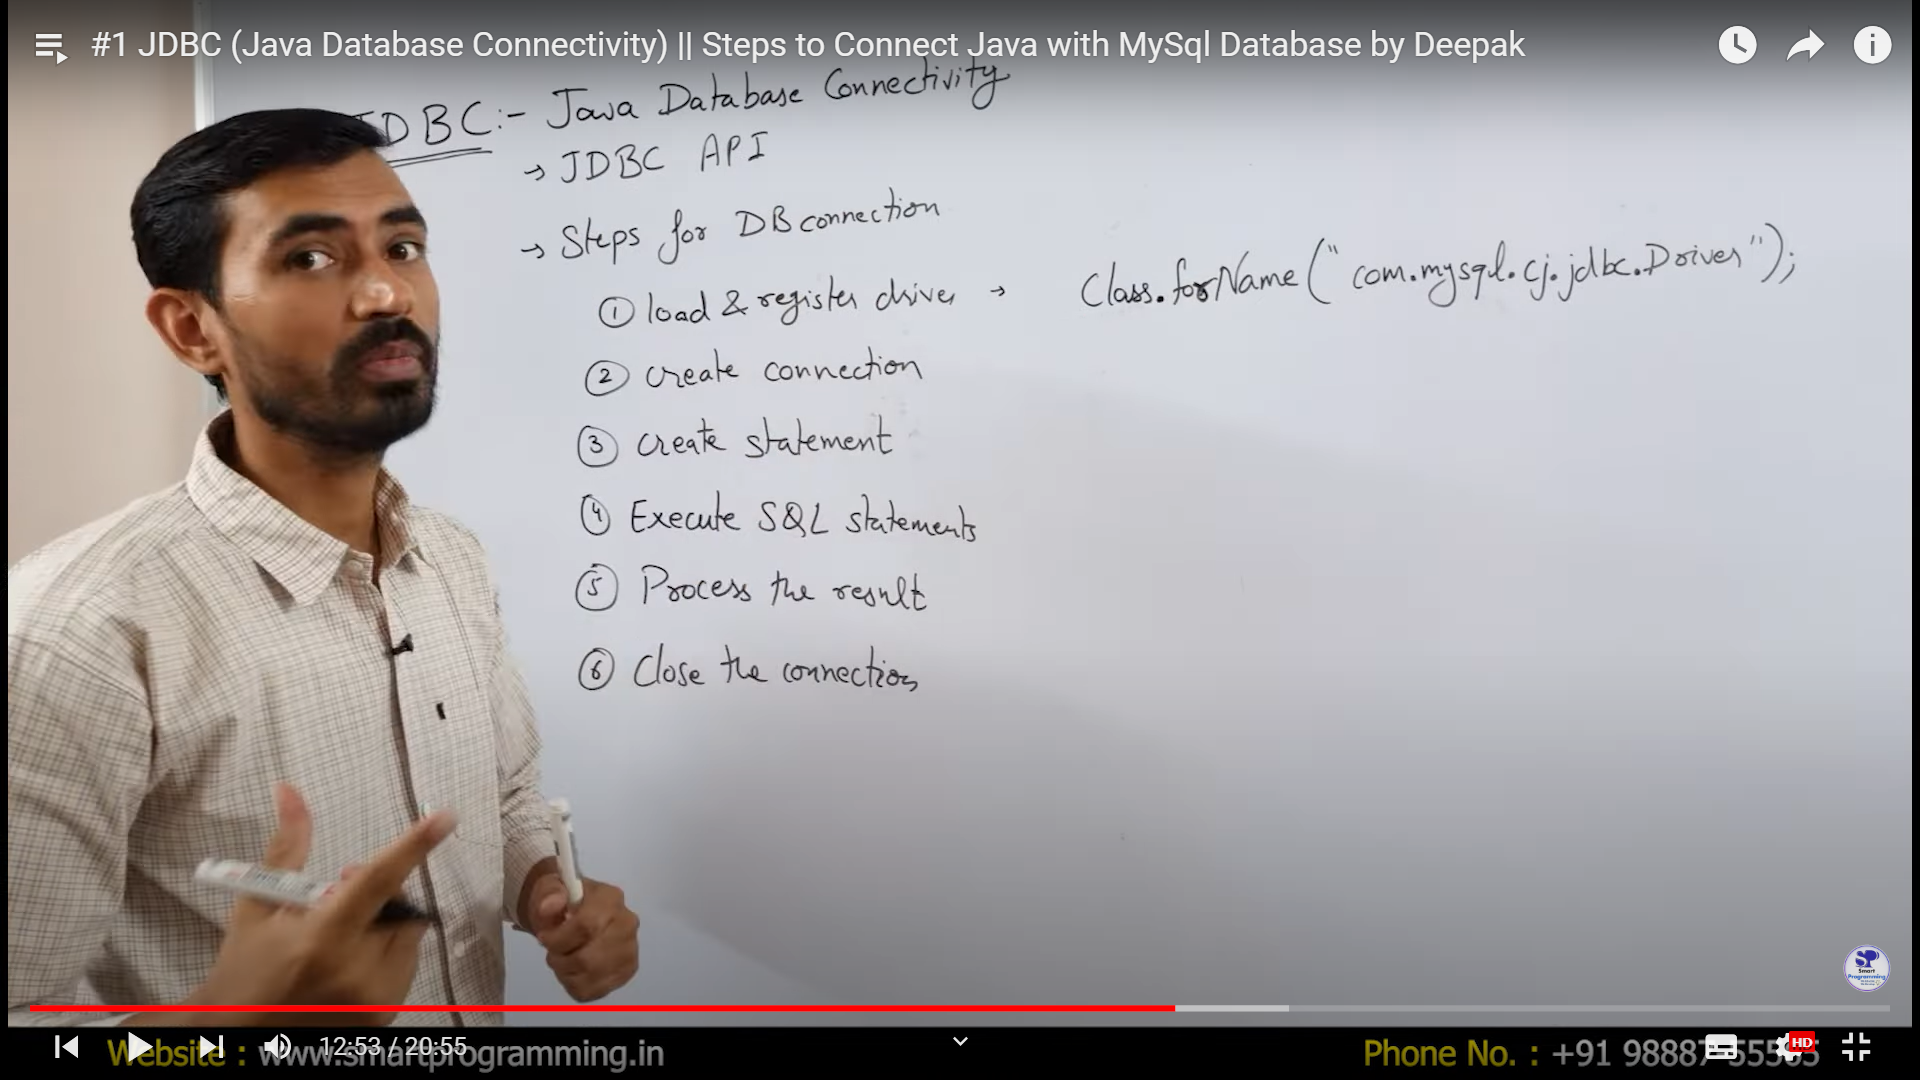 #1 JDBC (Java Database Connectivity) || Steps to Connect Java with MySql Database by Deepak
JDBC:- Java Database Connectivity
→ JDBC API
→ Steps for DB connection
① load & register driver → Class.forName("com.mysql.cj.jdbc.Driver");
② create connection
③ create statement
④ Execute SQL statements
⑤ Process the result
⑥ Close the connection
SP
Smart
Programming
12:53 / 20:55
HD
Website : www.smartprogramming.in
Phone No. : +91 98887-55565